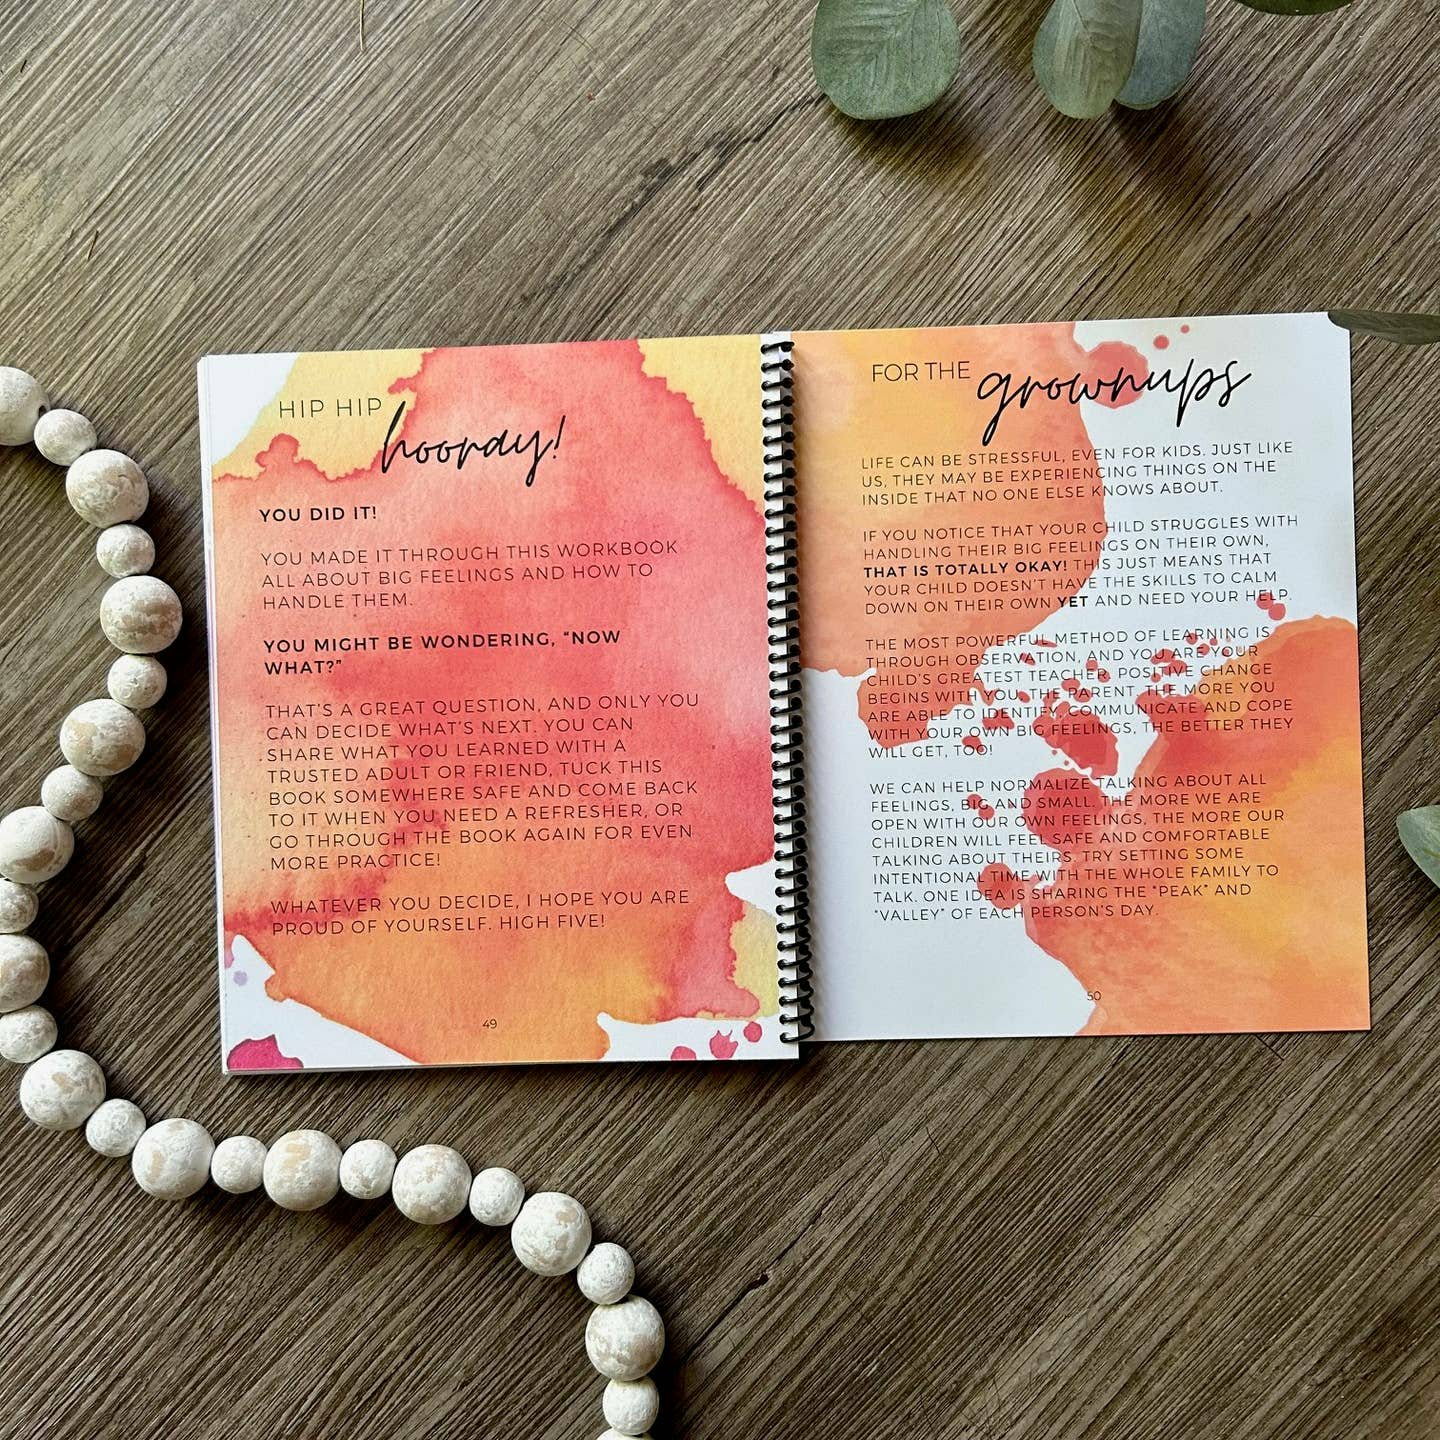 HIP HIP
hooray!
YOU DID IT!
YOU MADE IT THROUGH THIS WORKBOOK
ALL ABOUT BIG FEELINGS AND HOW TO
HANDLE THEM.
YOU MIGHT BE WONDERING, "NOW
WHAT?"
THAT'S A GREAT QUESTION, AND ONLY YOU
CAN DECIDE WHAT'S NEXT. YOU CAN
SHARE WHAT YOU LEARNED WITH A
TRUSTED ADULT OR FRIEND, TUCK THIS
BOOK SOMEWHERE SAFE AND COME BACK
TO IT WHEN YOU NEED A REFRESHER, OR
GO THROUGH THE BOOK AGAIN FOR EVEN
MORE PRACTICE!
WHATEVER YOU DECIDE, I HOPE YOU ARE
PROUD OF YOURSELF. HIGH FIVE!
49
FOR THE grownups
LIFE CAN BE STRESSFUL, EVEN FOR KIDS. JUST LIKE
US, THEY MAY BE EXPERIENCING THINGS ON THE
INSIDE THAT NO ONE ELSE KNOWS ABOUT.
IF YOU NOTICE THAT YOUR CHILD STRUGGLES WITH
HANDLING THEIR BIG FEELINGS ON THEIR OWN,
THAT IS TOTALLY OKAY! THIS JUST MEANS THAT
YOUR CHILD DOESN'T HAVE THE SKILLS TO CALM
DOWN ON THEIR OWN YET AND NEED YOUR HELP.
THE MOST POWERFUL METHOD OF LEARNING IS
THROUGH OBSERVATION, AND YOU ARE YOUR
CHILD'S GREATEST TEACHER. POSITIVE CHANGE
BEGINS WITH YOU, THE PARENT. THE MORE YOU
ARE ABLE TO IDENTIFY, COMMUNICATE AND COPE
WITH YOUR OWN BIG FEELINGS, THE BETTER THEY
WILL GET, TOO!
WE CAN HELP NORMALIZE TALKING ABOUT ALL
FEELINGS, BIG AND SMALL. THE MORE WE ARE
OPEN WITH OUR OWN FEELINGS, THE MORE OUR
CHILDREN WILL FEEL SAFE AND COMFORTABLE
TALKING ABOUT THEIRS. TRY SETTING SOME
INTENTIONAL TIME WITH THE WHOLE FAMILY TO
TALK. ONE IDEA IS SHARING THE "PEAK" AND
"VALLEY" OF EACH PERSON'S DAY.
50